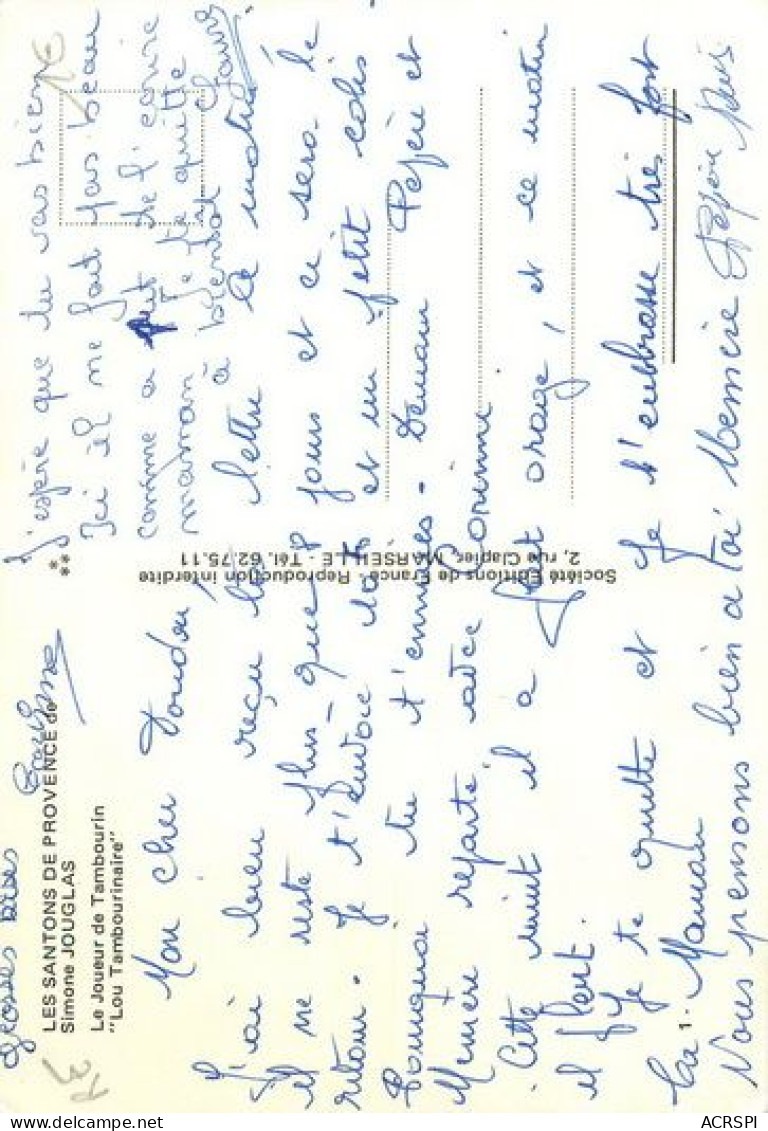 LES SANTONS DE PROVENCE de
Simone JOUGLAS
Le Joueur de Tambourin
"Lou Tambourinaire"
Société Editions de France - Reproduction interdite
2, rue Clapier, MARSEILLE - Tél. 62.75.11
**
Mon cher Doudou,
J'ai bien reçu ta lettre ce matin
il ne reste plus que 8 jours et ce sera le
retour. Je t'envoie et un petit colis
Pourquoi tu t'ennuies - Demain Pépère et
Mémère reparte avec Corinne.
Cette nuit il a fait orage, et ce matin
il pleut.
Je te quitte et je t'embrasse très fort
Ta Maman
1.
Nous pensons bien a toi Mémère Pépère
J'espère que tu vas bien
Ici il ne fait pas beau
comme a de l'écrire
maman Je te quitte
à bientot
Grosses bises
34
ACRSPI